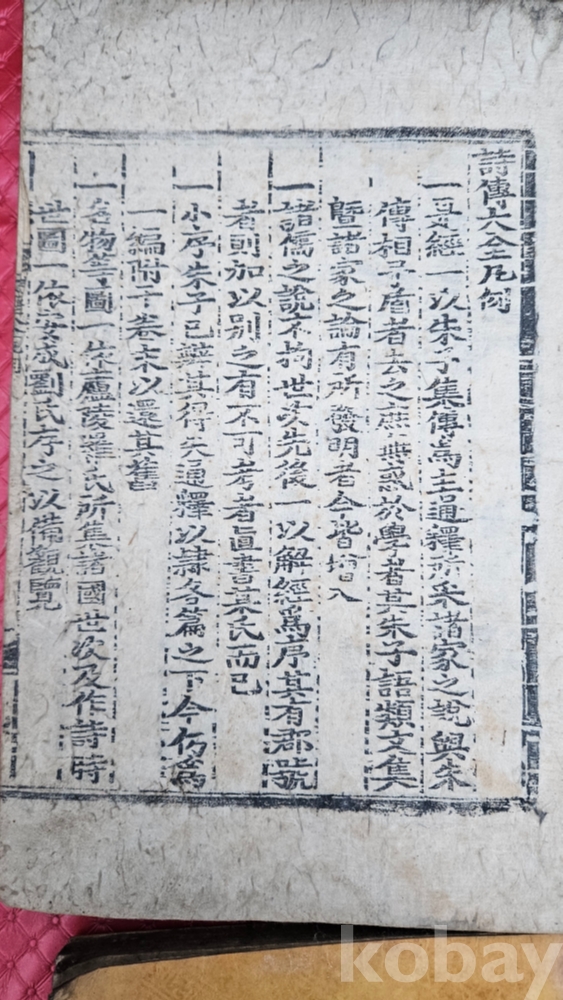 詩傳大全凡例
一頁經一以朱子集傳爲主通釋所采諸家之說與朱
傳相矛盾者去之庶無惑於學者其朱子語類文集
曁諸家之論有所發明者今皆增入
一諸儒之說不拘世次先後一以解經爲序其有郡號
者則加以別之有不可考者直書某氏而已
一小序朱子已辨其得失通釋以隸各篇之下今仍爲
一編附于卷末以還其舊
一名物等圖一本廬陵羅氏所集諸國世次及作詩時
世圖一依安成劉氏序之以備觀覽
kobay